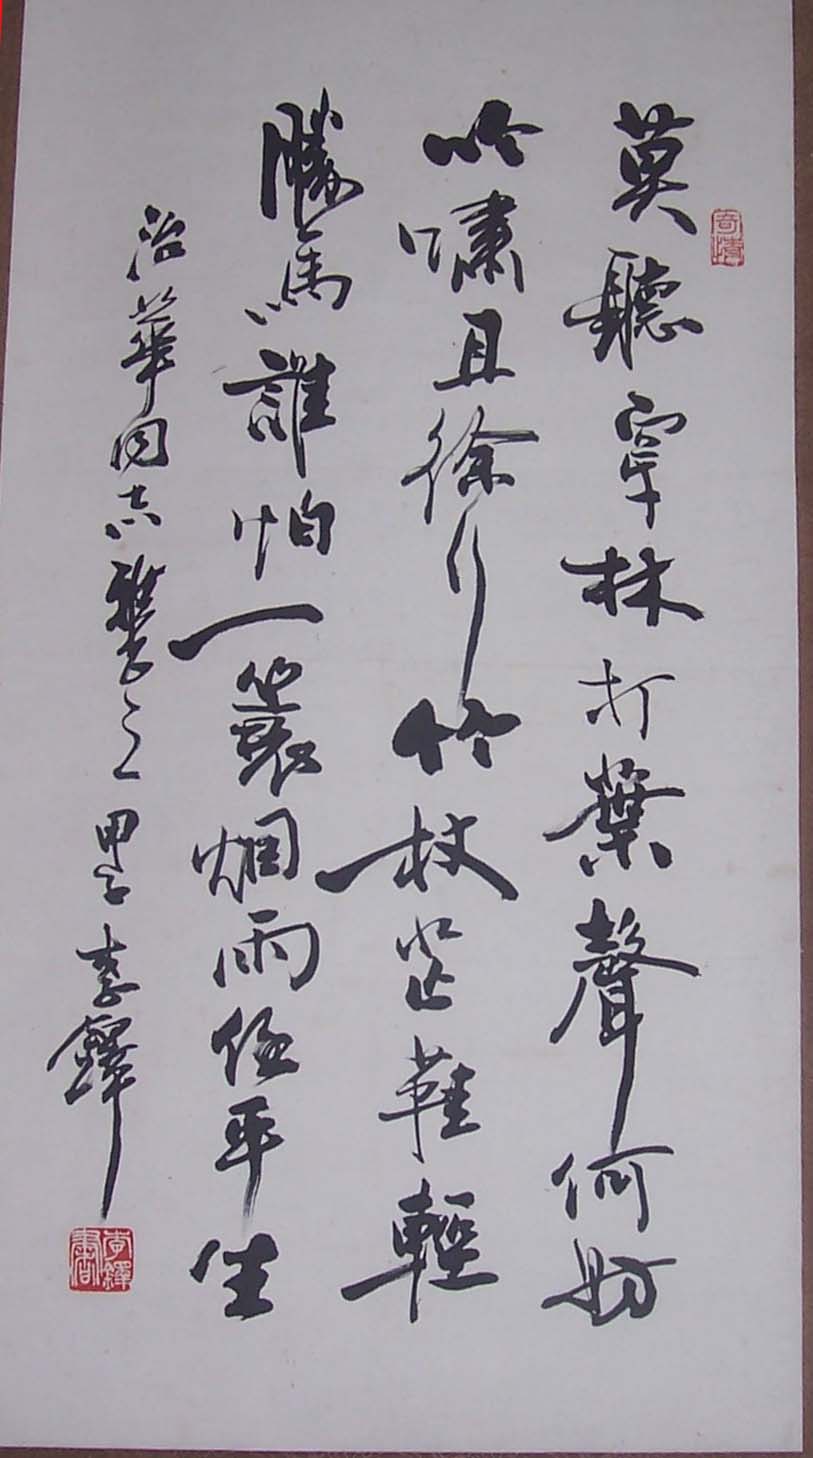 莫聽穿林打葉聲何妨
吟嘯且徐行竹杖芒鞋輕
勝馬誰怕一蓑烟雨任平生
治華同志雅鑒之 甲子 李鐸
李鐸書